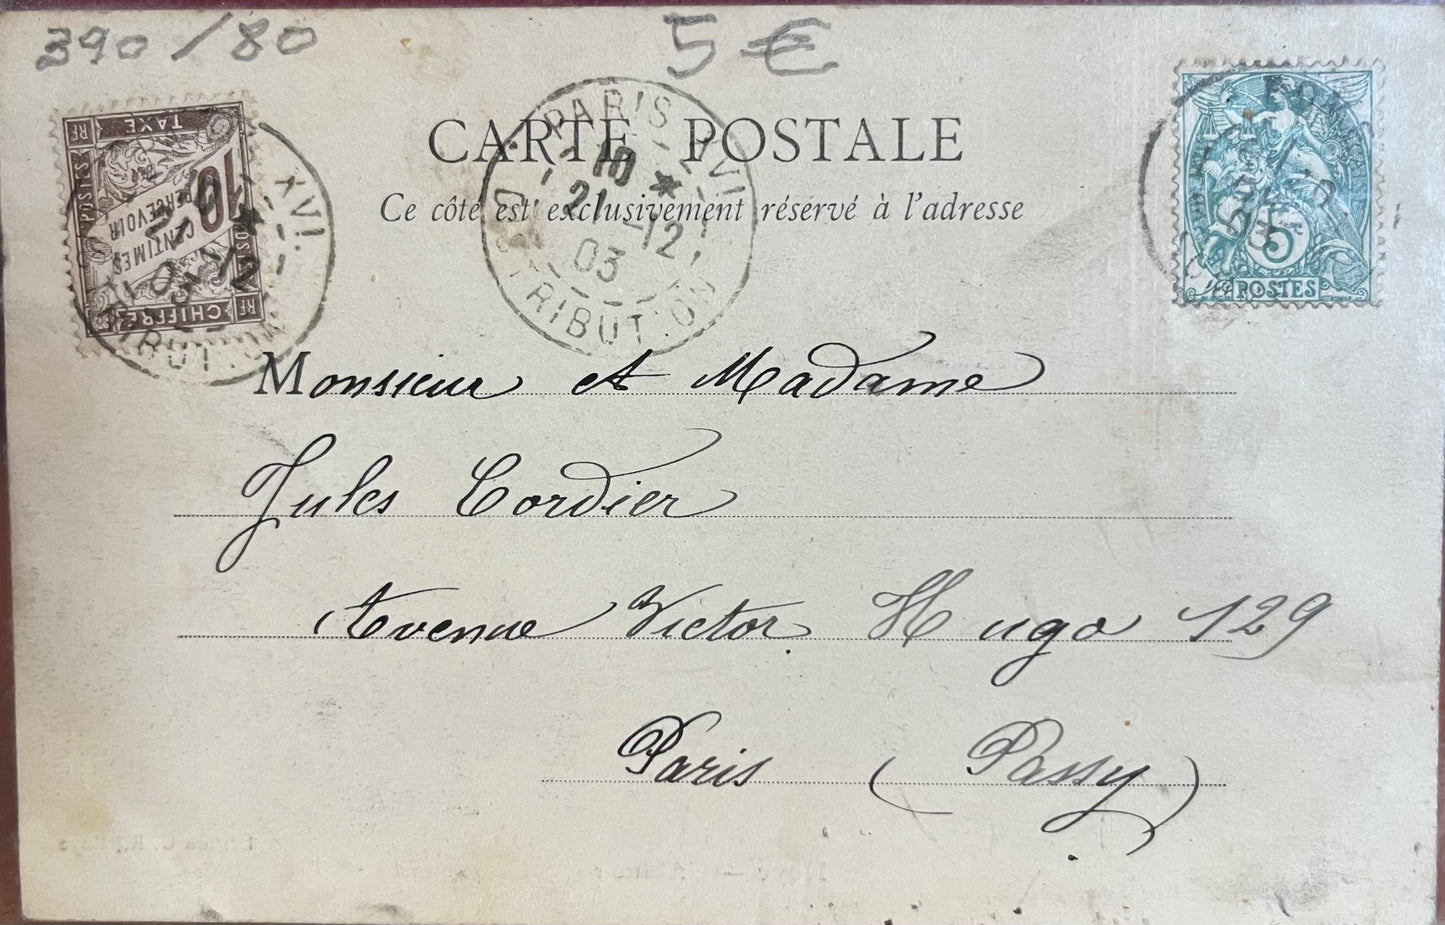 390/80
5 €
CARTE POSTALE
Ce côté est exclusivement réservé à l'adresse
PARIS XVI
10
21 12
03
DISTRIBUTION
TAXE
RF RF
POSTES
10
CENTIMES
À PERCEVOIR
CHIFFRE
RF
XVI
12
03
5
POSTES
Monsieur et Madame
Jules Cordier
Avenue Victor Hugo 129
Paris (Passy)